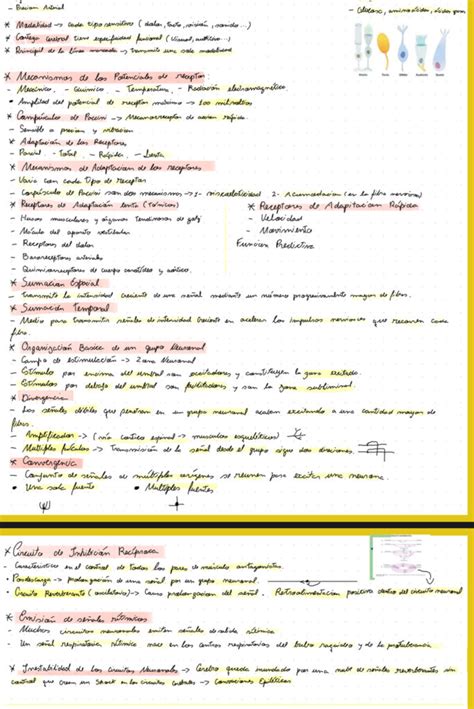 - Presion Arterial
- Glucosa, aminoacidos, acidos grasos
* Modalidad -> cada tipo sensitivo (dolor, tacto, visión, sonido...)
* Corteza cerebral tiene especificidad funcional (Visual, auditiva...)
* Principio de la línea marcada -> transmite una sola modalidad
* Mecanismos de los Potenciales de receptor
- Mecánico, - Químico - Temperatura, - Radiación electromagnética
• Amplitud del potencial de receptor máxima -> 100 milivoltios
* Corpúsculo de Pacini -> Mecanorreceptor de acción rápida.
- Sensible a presion y vibracion
* Adaptación de los Receptores
- Parcial - Total - Rápida - Lenta
* Mecanismos de Adaptacion de los receptores
- Varia con cada tipo de receptor
- Corpúsculo de Pacini son dos mecanismos -> 1- viscoelasticidad 2- Acumulación (en la fibra nerviosa)
* Receptores de Adaptación lenta (Tónicos)
- Husos musculares y órganos tendinosos de golgi
- Mácula del aparato vestibular
- Receptores del dolor
- Barorreceptores arteriales
- Quimiorreceptores de cuerpo carotídeo y aórtico.
* Receptores de Adaptacion Rápida
- Velocidad
- Movimiento
Funcion Predictiva
* Sumacion Espacial
- transmite la intensidad creciente de una señal mediante un número progresivamente mayor de fibras.
* Sumación Temporal
- Medio para transmitir señales de intensidad creciente en acelerar los impulsos nerviosos que recorren cada
fibra.
* Organización Basica de un grupo Neuronal
- Campo de estimulación -> Zona Neuronal
- Estímulos por encima del umbral son excitadores y constituyen la zona excitada.
- Estímulos por debajo del umbral son facilitadores y son la zona subliminal.
* Divergencia
- Las señales débiles que penetran en un grupo neuronal acaben excitando a una cantidad mayor de
fibras.
- Amplificador -> (vía cortico espinal -> musculos esqueléticos)
- Multiples fascículos -> Transmisión de la señal desde el grupo sigue dos direcciones.
* Convergencia
- Conjunto de señales de múltiples orígenes se reunen para excitar una neurona.
• Una sola fuente • Multiples fuentes
* Circuito de Inhibición Recíproca
- Característico en el control de todos los pares de músculos antagonistas.
• Posdescarga -> prolongación de una señal por un grupo neuronal.
• Circuito Reverberante (oscilatorio) -> Causa prolongacion del señal. Retroalimentacion positiva dentro del circuito neuronal
* Emisión de señales rítmicas
- Muchos circuitos neuronales emiten señales de salida rítmica
- Un señal respiratoria rítmica nace en los centros respiratorios del bulbo raquídeo y de la protuberancia
* Inestabilidad de los Circuitos Neuronales -> Cerebro queda inundado por una masa de señales reverberantes sin
control que crean un Shock en los circuitos centrales -> Convulsiones Epilépticas